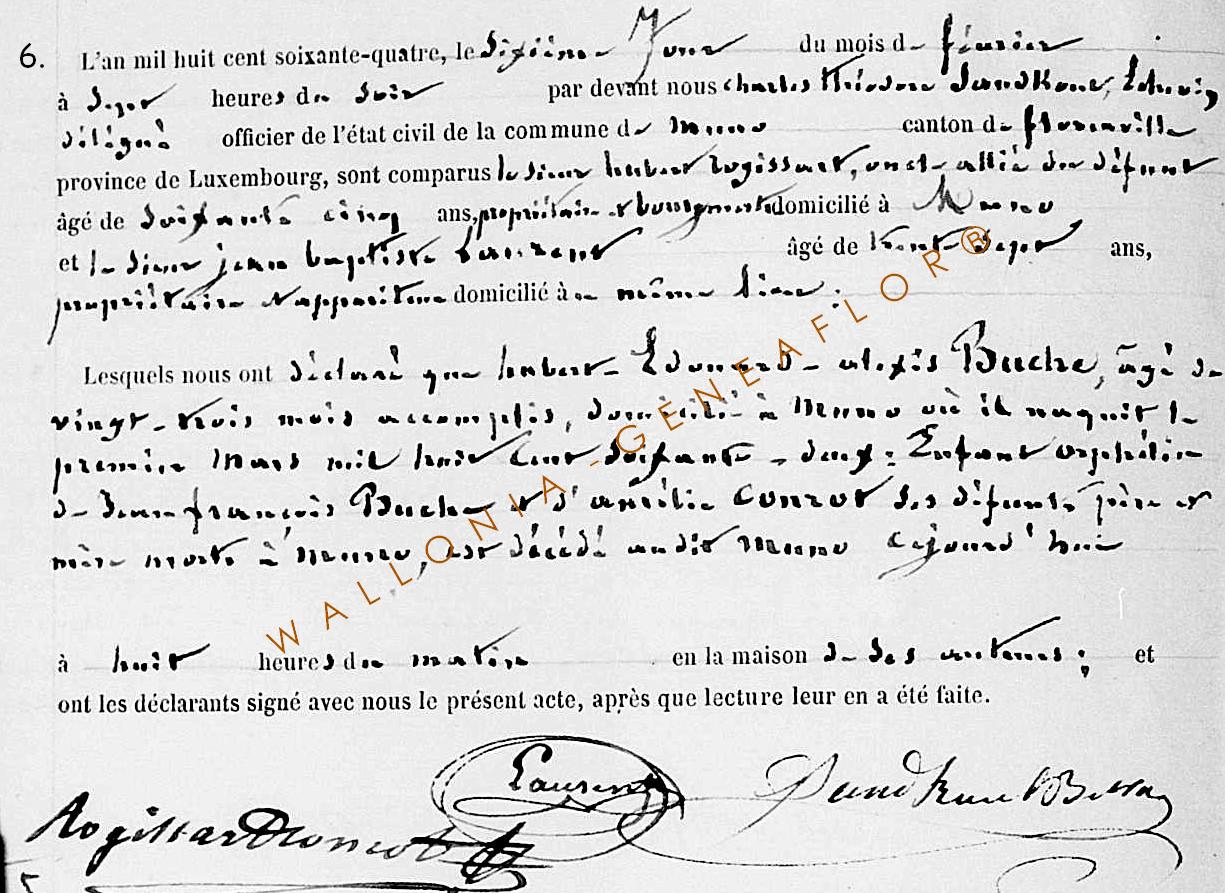 6. L'an mil huit cent soixante-quatre, le dixième Jour du mois de février
à Sept heures du Soir par devant nous charles théodore Dandkone, Echevin
délégué officier de l'état civil de la commune de Muno canton de florenville
province de Luxembourg, sont comparus le Sieur hubert rogissart, oncle allié du défunt
âgé de Soixante cinq ans, propriétaire et bourgmestre domicilié à Muno
et le Sieur jean baptiste Laurent âgé de trente Sept ans,
propriétaire et appariteur domicilié à même lieu.
Lesquels nous ont déclaré que hubert-Edouard-alexis Buche, âgé de
vingt-trois mois accomplis, domicilié à Muno où il naquit le
premier Mars mil huit Cent Soixante-deux; Enfant orphelin
de Jean françois Buche et d'amélie Conrot ses défunts père et
mère morts à Muno, est décédé audit Muno Cejourd'hui
à huit heures du matin en la maison de ses auteurs; et
ont les déclarants signé avec nous le présent acte, après que lecture leur en a été faite.
Laurent
Rogissart Conrot
WALLONIA - GENEAFLOR®